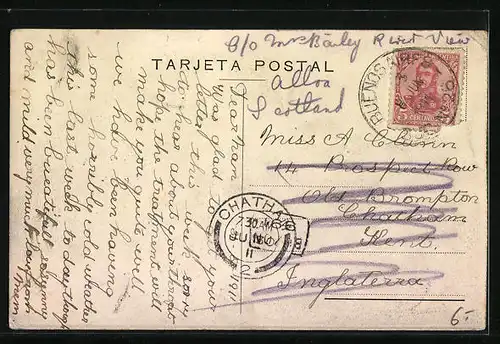 C/o Mrs Bailey River View
TARJETA POSTAL
Alloa
Scotland
BUENOS AIRES
5 CENTAVOS
Miss A Clunn
14 Prospect Row
Old Brompton
Chatham
Kent.
Inglaterra
CHATHAM
7 30 AM
JU
11
2
1911
Dear Nam
Was glad to get your
letter this week sorry
to hear about your throat
hope the treatment will
make you quite well
we have been having
some horribly cold weather
this last week to day though
has been beautiful sunshine
and mild very much
6-